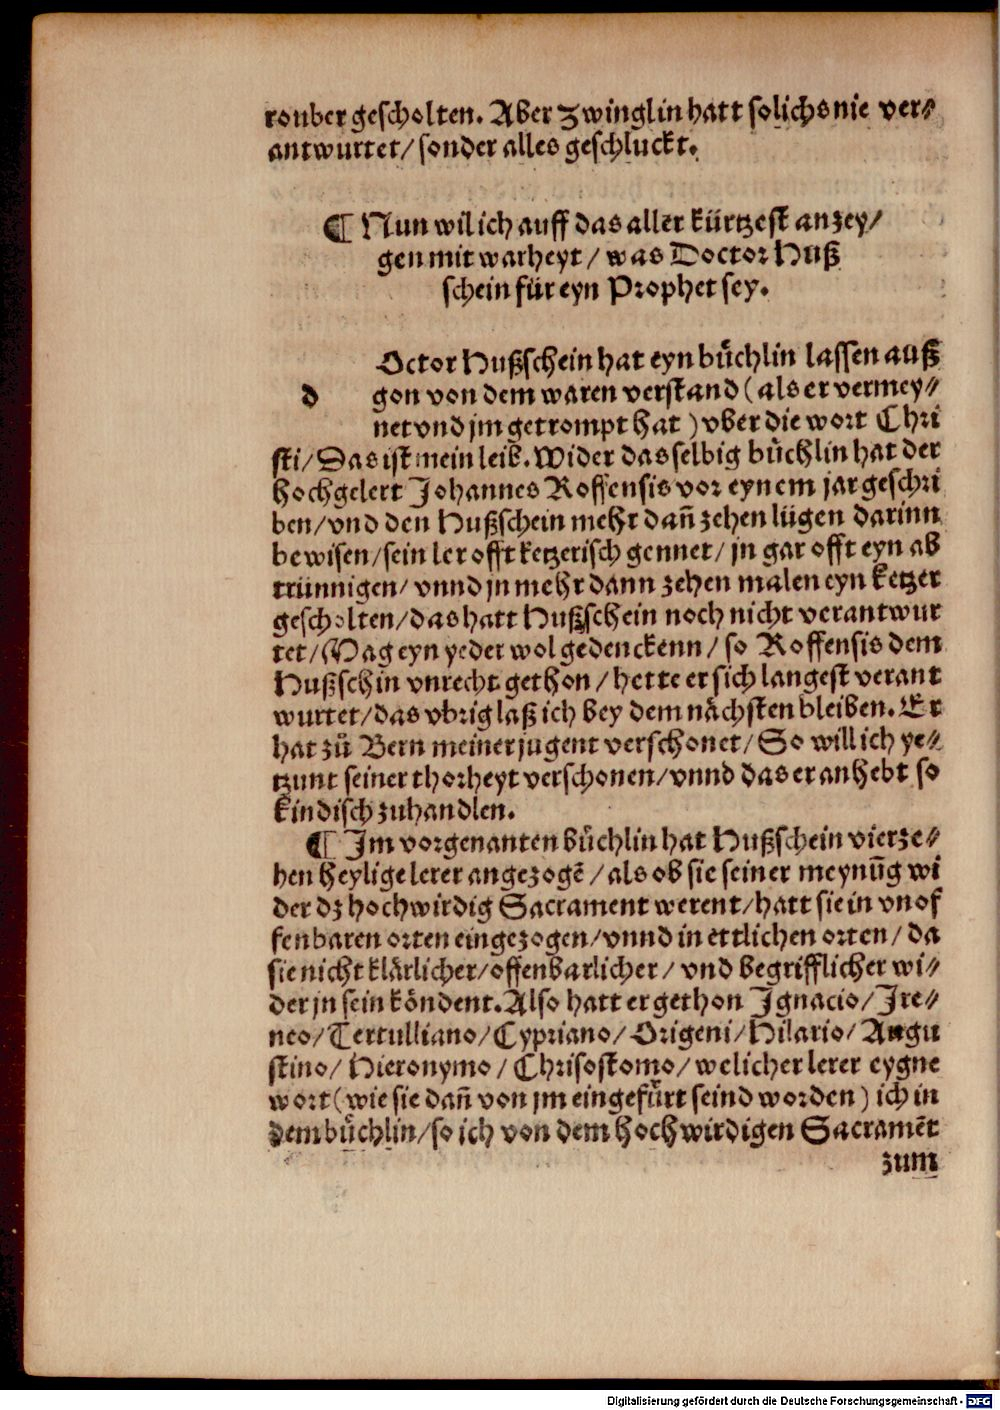 rouber gescholten. Aber Zwinglin hatt solichs nie ver⸗
antwurtet/ sonder alles geschluckt.
¶ Nun wil ich auff das aller kürtzest anzey/
gen mit warheyt / was Doctor Huß
schein für eyn Prophet sey.
Octor Hußschein hat eyn bůchlin lassen auß
d gon von dem waren verstand (als er vermey⸗
net vnd jm getrompt hat ) vber die wort Chri
sti/ Das ist mein leib. Wider das selbig bůchlin hat der
hochgelert Johannes Roffensis vor eynem jar geschri
ben/ vnd den Hußschein mehr dañ zehen lügen darinn
bewisen/ sein ler offt ketzerisch gennet/ jn gar offt eyn ab
trünnigen/ vnnd jn mehr dann zehen malen eyn ketzer
gescholten/ das hatt Hußschein noch nicht verantwur
tet/ Mag eyn yeder wol gedenckenn/ so Roffensis dem
Hußschin vnrecht gethon/ hette er sich langest verant
wurtet/ das vbrig laß ich bey dem nächsten bleiben. Er
hat zů Bern meiner jugent verschonet/ So will ich ye⸗
tzunt seiner thorheyt verschonen/ vnnd das er anhebt so
kindisch zuhandlen.
¶ Im vorgenanten bůchlin hat Hußschein vierze⸗
hen heylige lerer angezogẽ / als ob sie seiner meynũg wi
der dz hochwirdig Sacrament werent/ hatt sie in vnof
fenbaren orten eingezogen/ vnnd in ettlichen orten/ da
sie nicht klärlicher/ offenbarlicher/ vnd begrifflicher wi⸗
der jn sein köndent. Also hatt er gethon Ignacio/ Ire⸗
neo/ Tertulliano/ Cypriano/ Origeni/ Hilario/ Augu
stino/ Hieronymo / Chrisostomo/ welicher lerer eygne
wort (wie sie dañ von jm eingefůrt seind worden ) ich in
dem bůchlin/ so ich von dem hochwirdigen Sacramẽt
zum
Digitalisierung gefördert durch die Deutsche Forschungsgemeinschaft - DFG